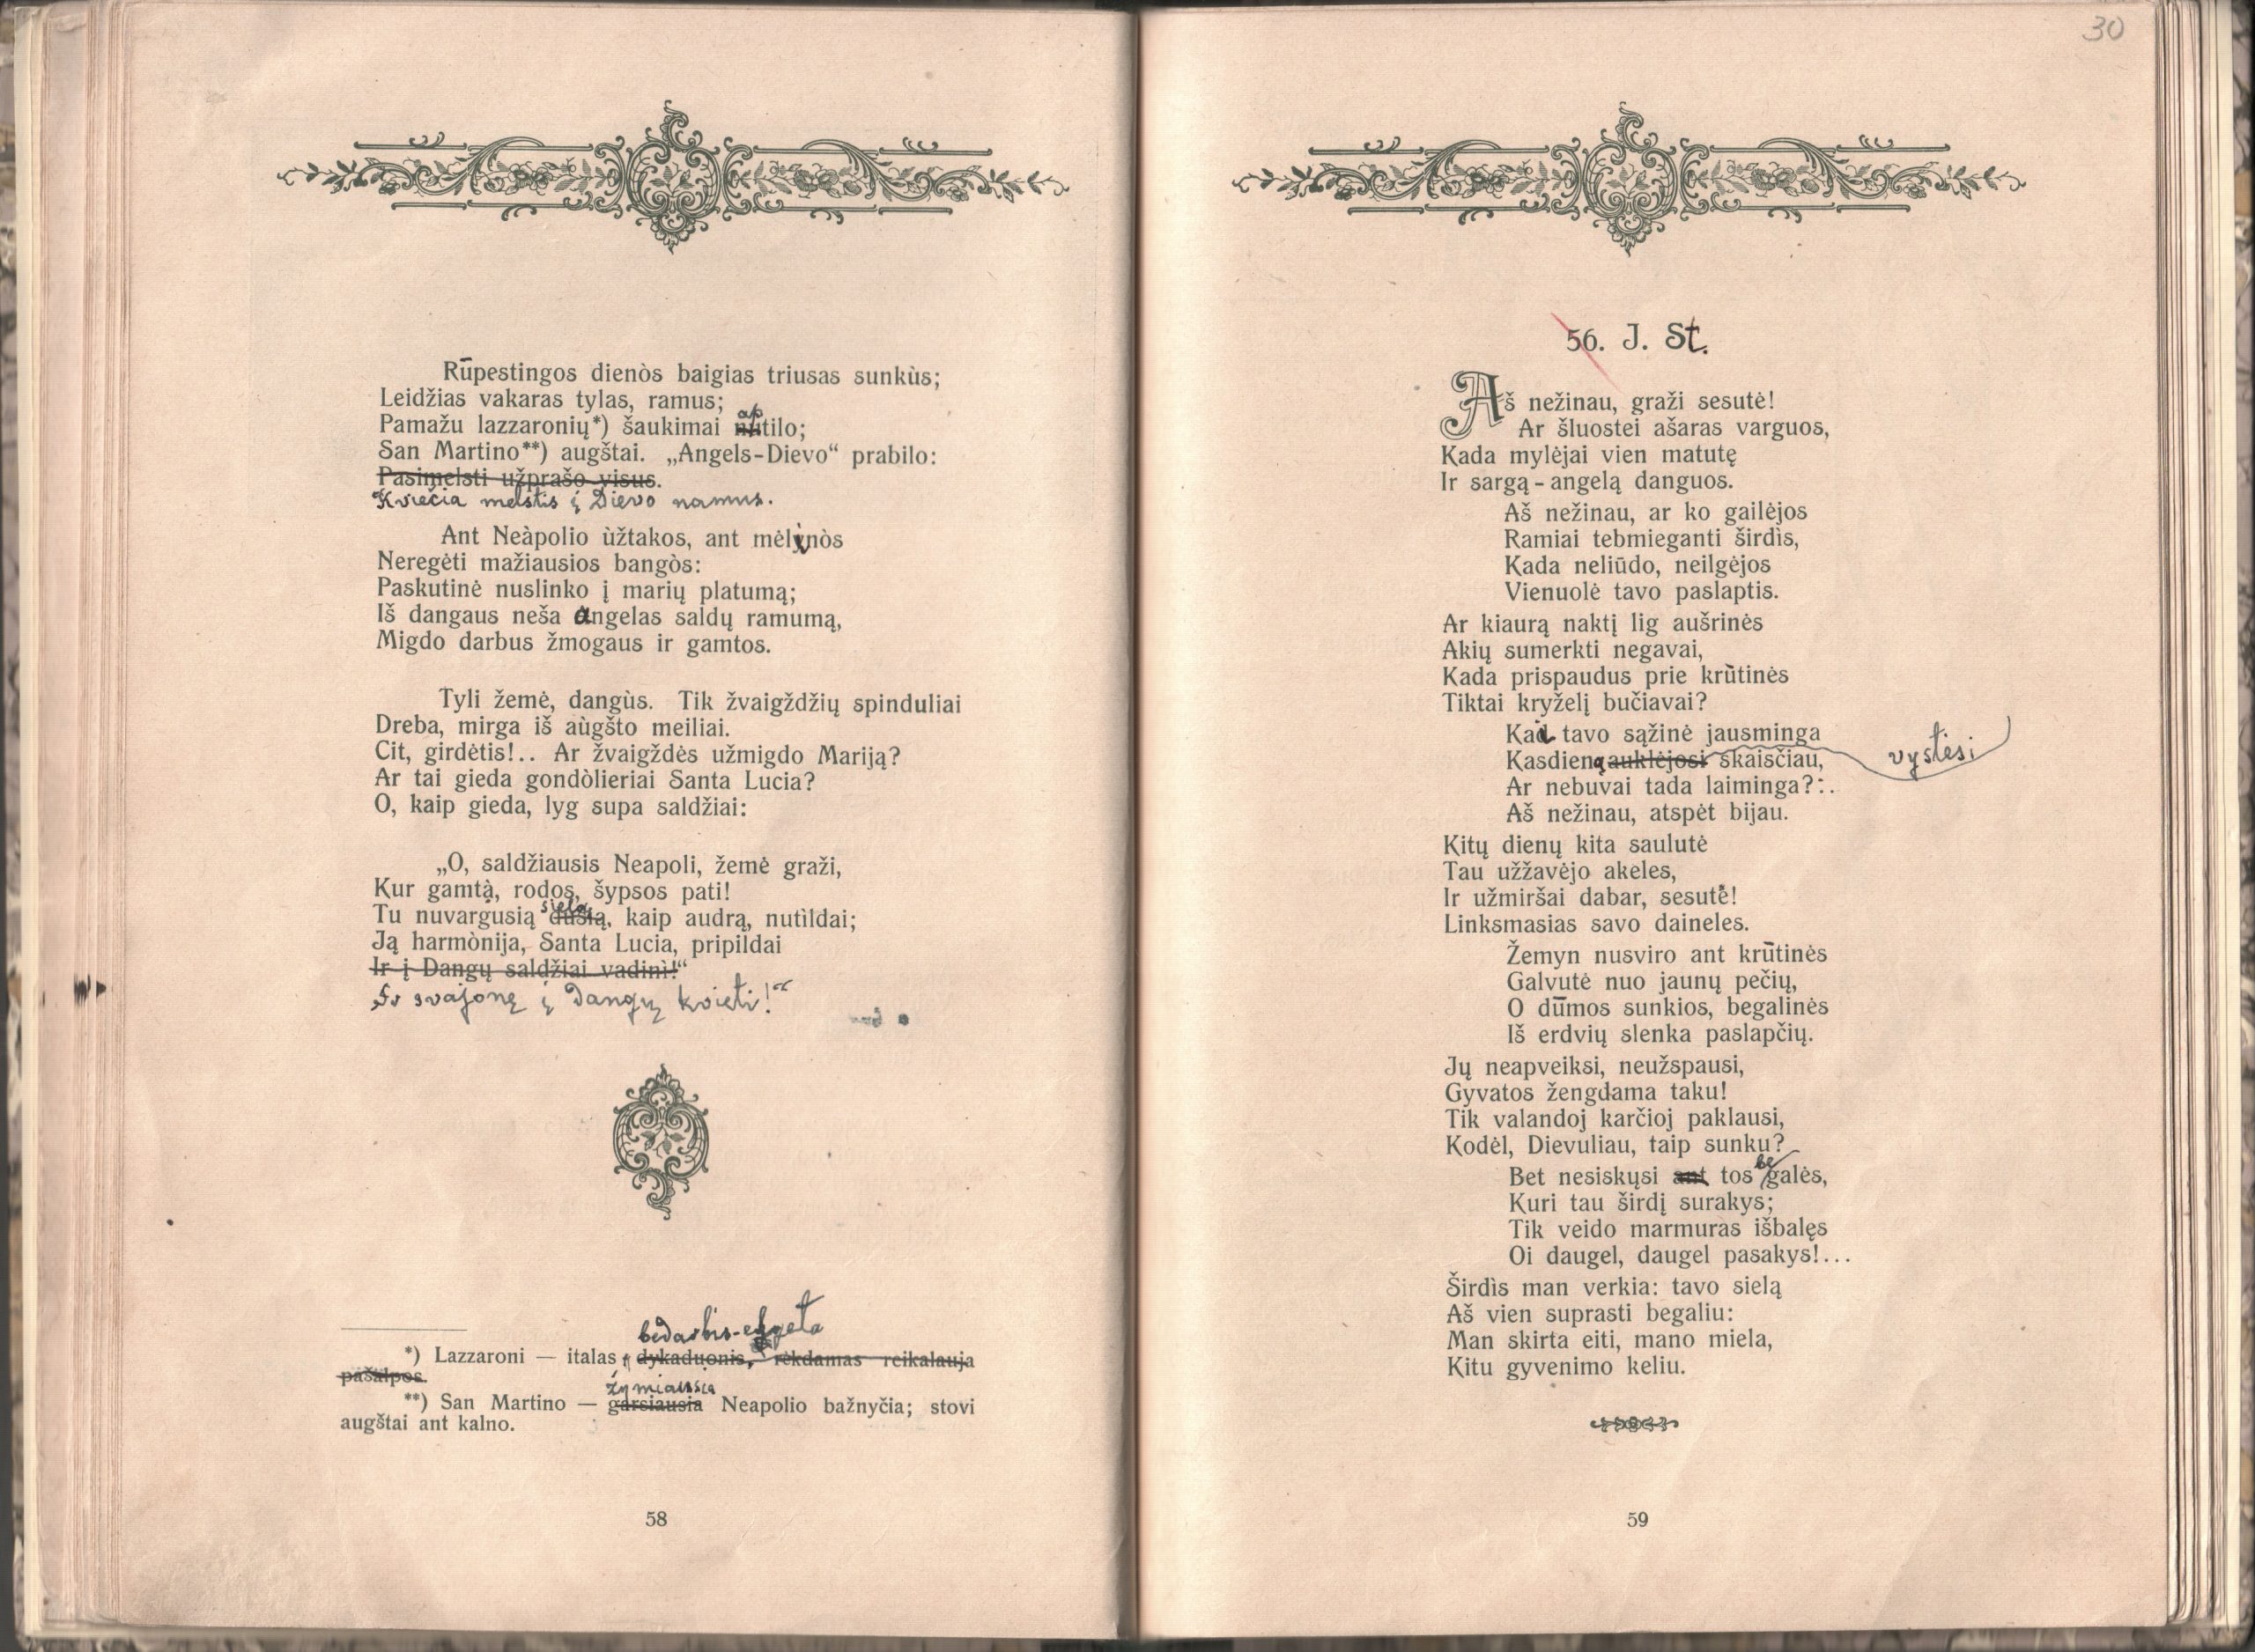 30
Rūpestingos dienòs baigias triusas sunkùs;
Leidžias vakaras tylas, ramus;
ap
Pamažu lazzaronių*) šaukimai nutilo;
San Martino**) augštai. „Angels-Dievo“ prabilo:
Pasimelsti užprašo visus.
Kviečia melstis į Dievo namus.
Ant Neàpolio ùžtakos, ant mėlynòs
Neregėti mažiausios bangòs:
Paskutinė nuslinko į marių platumą;
Iš dangaus neša angelas saldų ramumą,
Migdo darbus žmogaus ir gamtos.
Tyli žemė, dangùs. Tik žvaigždžių spinduliai
Dreba, mirga iš aùgšto meiliai.
Cit, girdėtis!.. Ar žvaigždės užmigdo Mariją?
Ar tai gieda gondòlieriai Santa Lucia?
O, kaip gieda, lyg supa saldžiai:
„O, saldžiausis Neapoli, žemė graži,
Kur gamtà, rodos, šypsos pati!
sielą
Tu nuvargusią dūšią, kaip audrą, nutildai;
Ją harmònija, Santa Lucia, pripildai
Ir į Dangų saldžiai vadinì!“
Ir svajonę į Dangų kvieti!“
bedarbis-elgeta
*) Lazzaroni — italas, dykaduonis, rėkdamas reikalauja
pašalpos.
žymiausia
**) San Martino — garsiausia Neapolio bažnyčia; stovi
augštai ant kalno.
58
56. J. St.
Aš nežinau, graži sesutė!
Ar šluostei ašaras varguos,
Kada mylėjai vien matutę
Ir sargą-angelą danguos.
Aš nežinau, ar ko gailėjos
Ramiai tebmieganti širdìs,
Kada neliūdo, neilgėjos
Vienuolė tavo paslaptis.
Ar kiaurą naktį lig aušrinės
Akių sumerkti negavai,
Kada prispaudus prie krūtinės
Tiktai kryželį bučiavai?
Kad tavo sąžinė jausminga
Kasdieną auklėjosi skaisčiau, vystėsi
Ar nebuvai tada laiminga?..
Aš nežinau, atspėt bijau.
Kitų dienų kita saulutė
Tau užžavėjo akeles,
Ir užmiršai dabar, sesutė!
Linksmasias savo daineles.
Žemyn nusviro ant krūtinės
Galvutė nuo jaunų pečių,
O dūmos sunkios, begalinės
Iš erdvių slenka paslapčių.
Jų neapveiksi, neužspausi,
Gyvatos žengdama taku!
Tik valandoj karčioj paklausi,
Kodėl, Dievuliau, taip sunku?
be
Bet nesiskųsi ant tos galės,
Kuri tau širdį surakys;
Tik veido marmuras išbalęs
Oi daugel, daugel pasakys!...
Širdìs man verkia: tavo sielą
Aš vien suprasti begaliu:
Man skirta eiti, mano miela,
Kitu gyvenimo keliu.
59